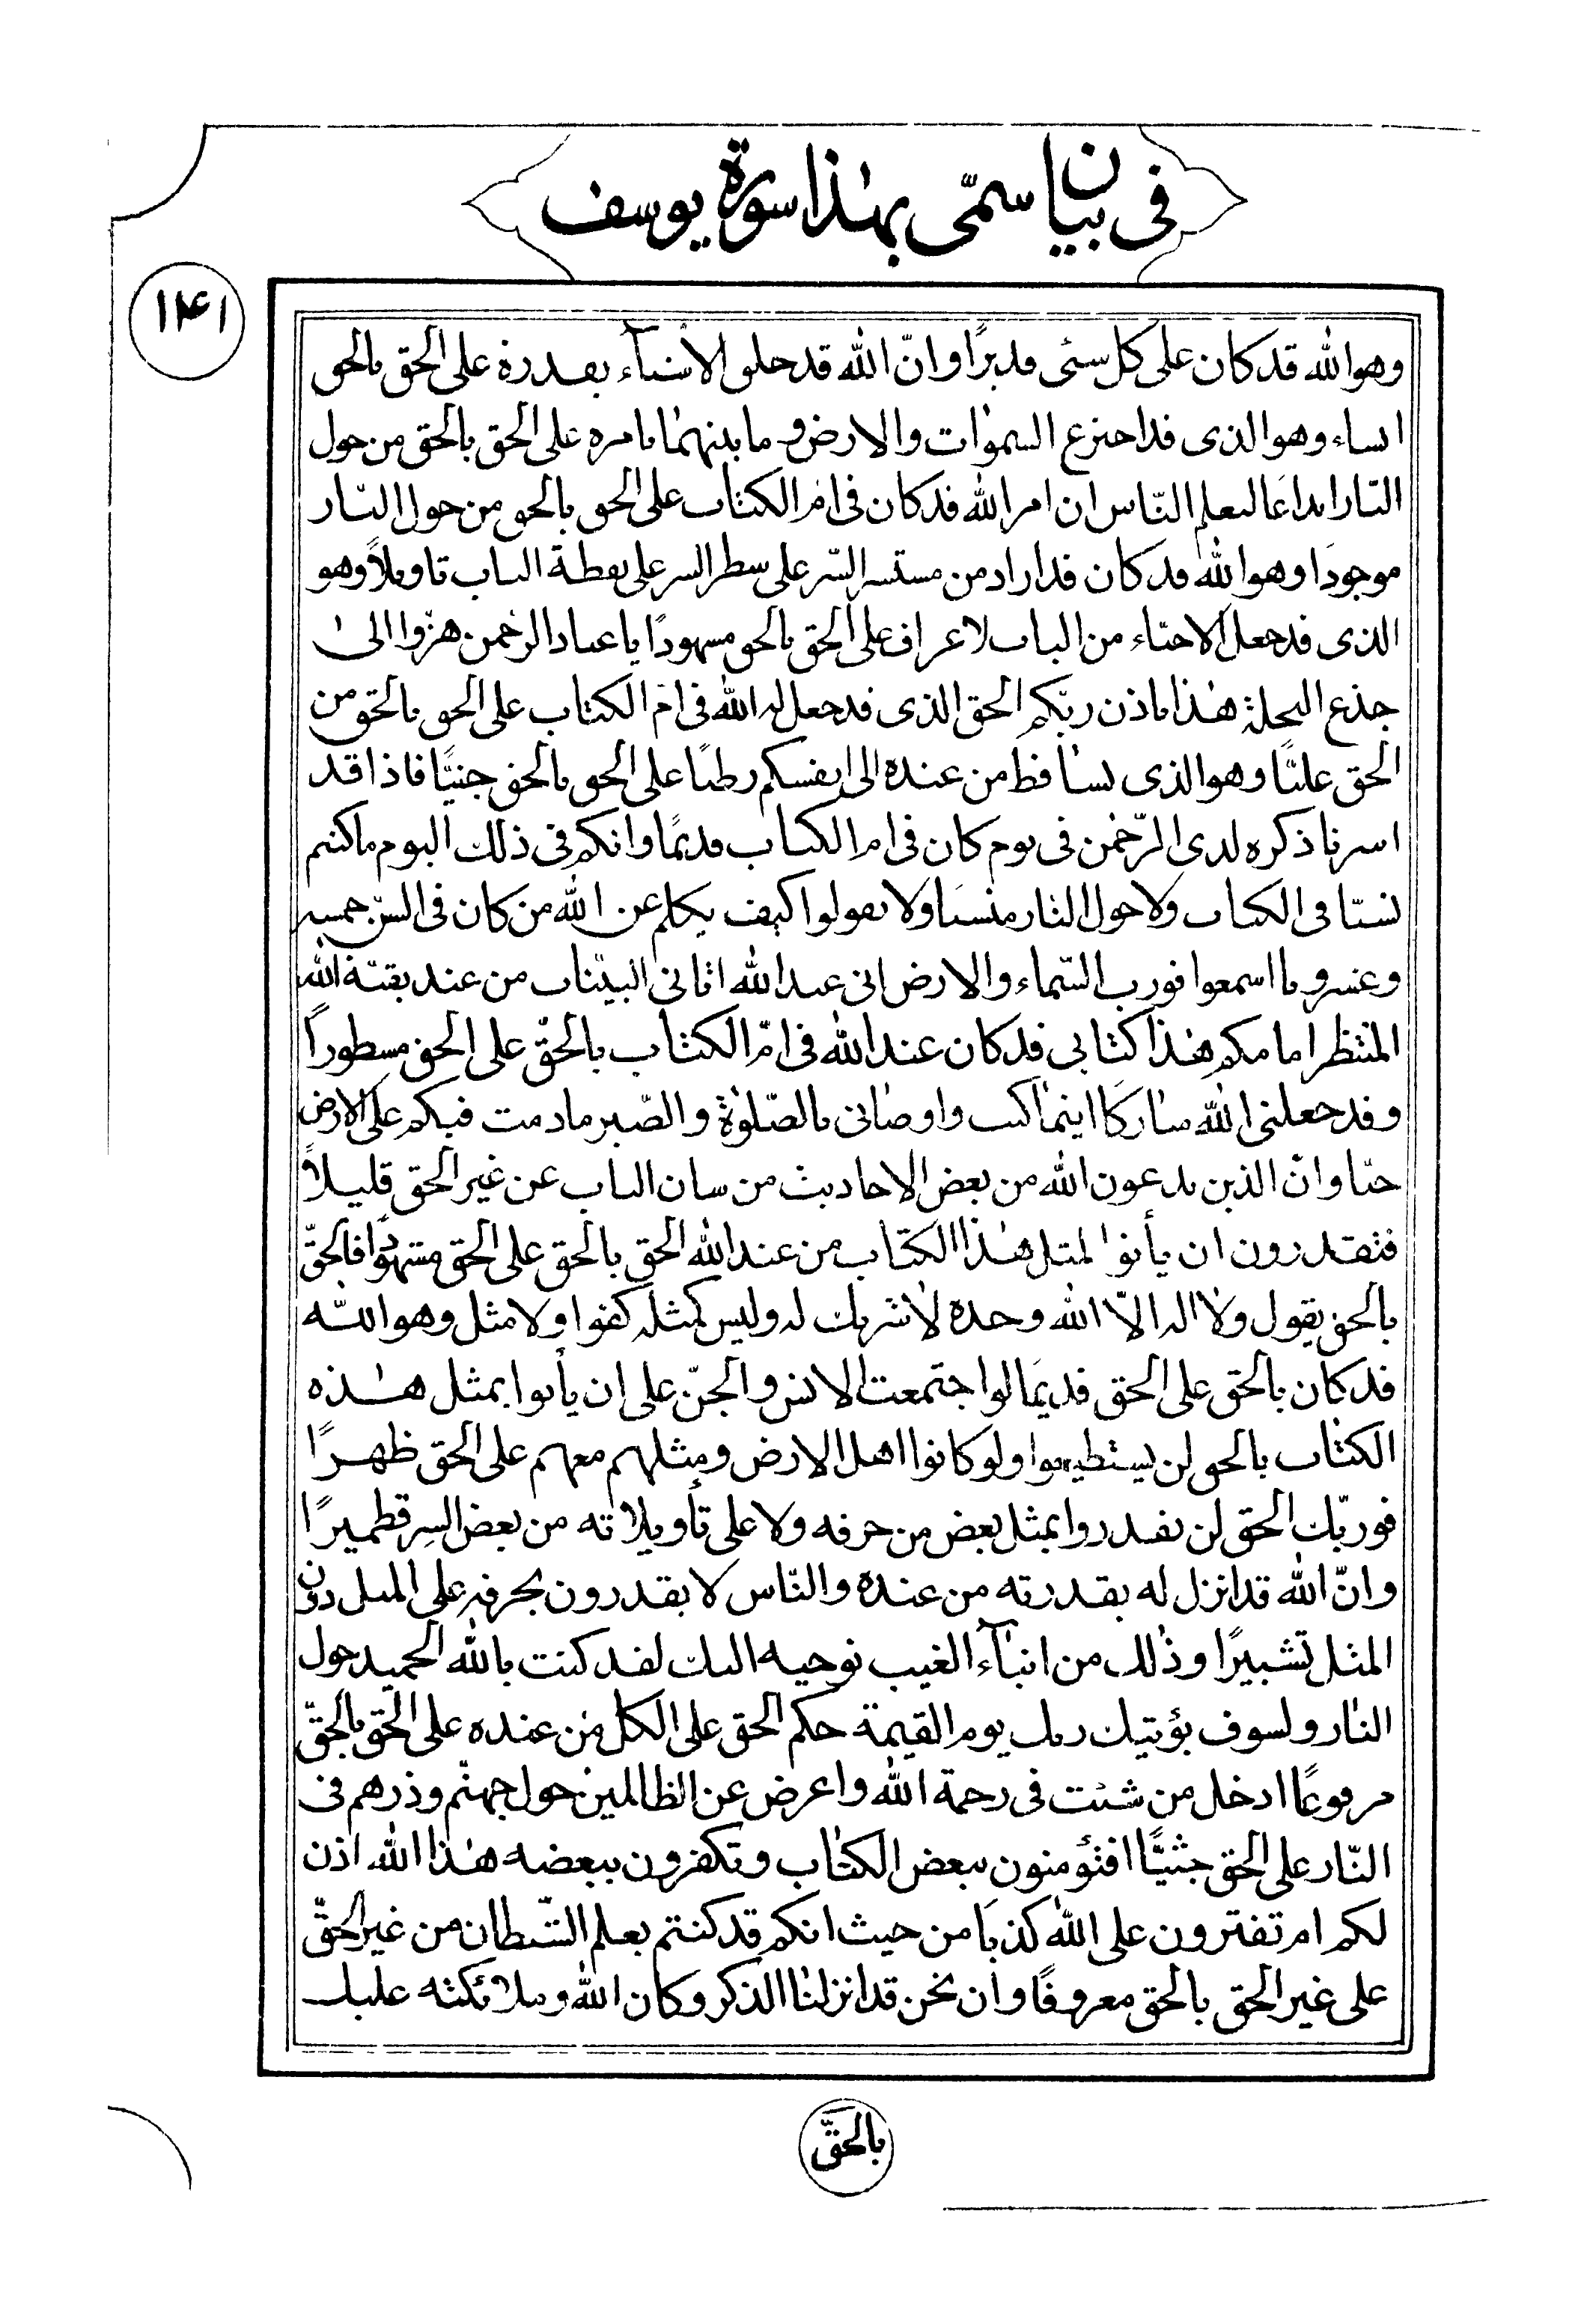 فى بيان سمّى بهٰذا سورة يوسف
١۴١
وهو الله قد كان على كل شئى قديرًا وانّ الله قد خلق الاشيآء بقدرة على الحق بالحق
انساء وهو الذى قد اخترع السمٰوات والارض و ما بينهمٰا بامره على الحق بالحق من حول
النّار ابداعًا ليعلم النّاس ان امر الله قد كان فى ام الكتٰاب على الحق بالحق من حول النّار
موجودًا وهو الله قد كان قد اراد من مستسر السّر على سطر السر على نقطة الباب تاويلاً وهو
الذى قد جعل الاحبّاء من الباب لاعراف على الحق بالحق مشهودًا يا عباد الرحمٰن هزّوا الىٰ
جذع النخلة هٰذا باذن ربّكم الحق الذى قد جعل له الله فى ام الكتاب على الحق بالحق من
الحق عليًّا وهو الذى تساقط من عنده الى انفسكم رطبًا على الحق بالحق جنيًّا فاذا قد
اسرنا ذكره لدى الرّحمٰن فى يوم كان فى ام الكتاب قديمًا وانكم فى ذلك اليوم ما كنتم
نسيّا فى الكتاب ولا حول النّار منسيًا ولا تقولوا كيف يكلم عن الله من كان فى السّن خمسة
وعشرو نا اسمعوا فورب السّماء والارض انى عبد الله اتانى البيّنات من عند بقيّة الله
المنتظر امامكم هٰذا كتابى قد كان عند الله فى امّ الكتٰاب بالحقّ على الحق مسطوراً
وقد جعلنى الله مباركًا اينمٰا كنت واوصٰانى بالصّلوٰة والصّبر ما دمت فيكم على الارض
حيّا وانّ الذين يدعون الله من بعض الاحاديث من شان الباب عن غير الحق قليلاً
فتقدرون ان يأتوا لمثل هٰذا الكتّاب من عند الله الحق بالحق على الحق مشهودًا فالحقّ
بالحق يقول ولا اله الاّ الله وحده لا شريك له وليس كمثله كفوا ولا مثل وهو اللّه
قد كان بالحق على الحق قديمًا لوا جتمعت الانس والجنّ على ان يأتوا بمثل هٰذه
الكتٰاب بالحق لن يستطيعوا ولو كانوا اهل الارض ومثلهم معهم على الحق ظهيرًا
فوربّك الحق لن يقدروا بمثل بعض من حرفه ولا على تأويلاته من بعض السِر قطميرًا
وانّ الله قد انزل له بقدرته من عنده والنّاس لا يقدرون بحرفه على المثل دون
المثل تشبيرًا وذٰلك من انبٰآء الغيب نوحيه اليك لقد كنت بالله الحميد حول
النٰار ولسوف يؤتيك ربك يوم القيمة حكم الحق على الكل من عنده على الحق بالحقّ
مرفوعًا ادخل من شئت فى رحمة الله واعرض عن الظالمين حول جهنّم وذرهم فى
النّار على الحق جثيًّا افتؤمنون ببعض الكتٰاب وتكفرون ببعضه هٰذا الله اذن
لكم ام تفترون على الله كذبًا من حيث انكم قد كنتم بعلم الشّيطان من غير الحقّ
على غير الحق بالحق معروفًا وان نحن قد انزلنٰا الذكر وكان الله وملائكته عليك
بالحقّ